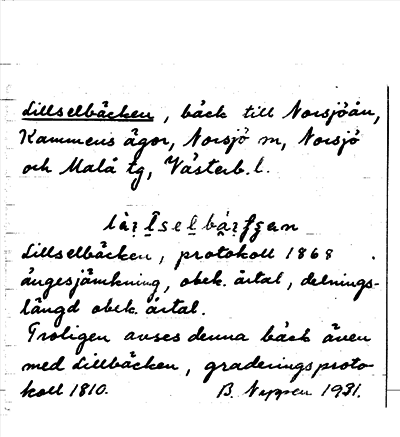 Lillselbäcken, bäck till Norsjöån,
Kammens ägor, Norsjö sn, Norsjö
och Malå tg, Västerb. l.
Lillselbäcken, protokoll 1868
ängesjämkning, obek. årtal, delnings-
längd obek. årtal.
Troligen avses denna bäck även
med Lillbäcken, graderingsproto-
koll 1810. B. Neppen 1931.